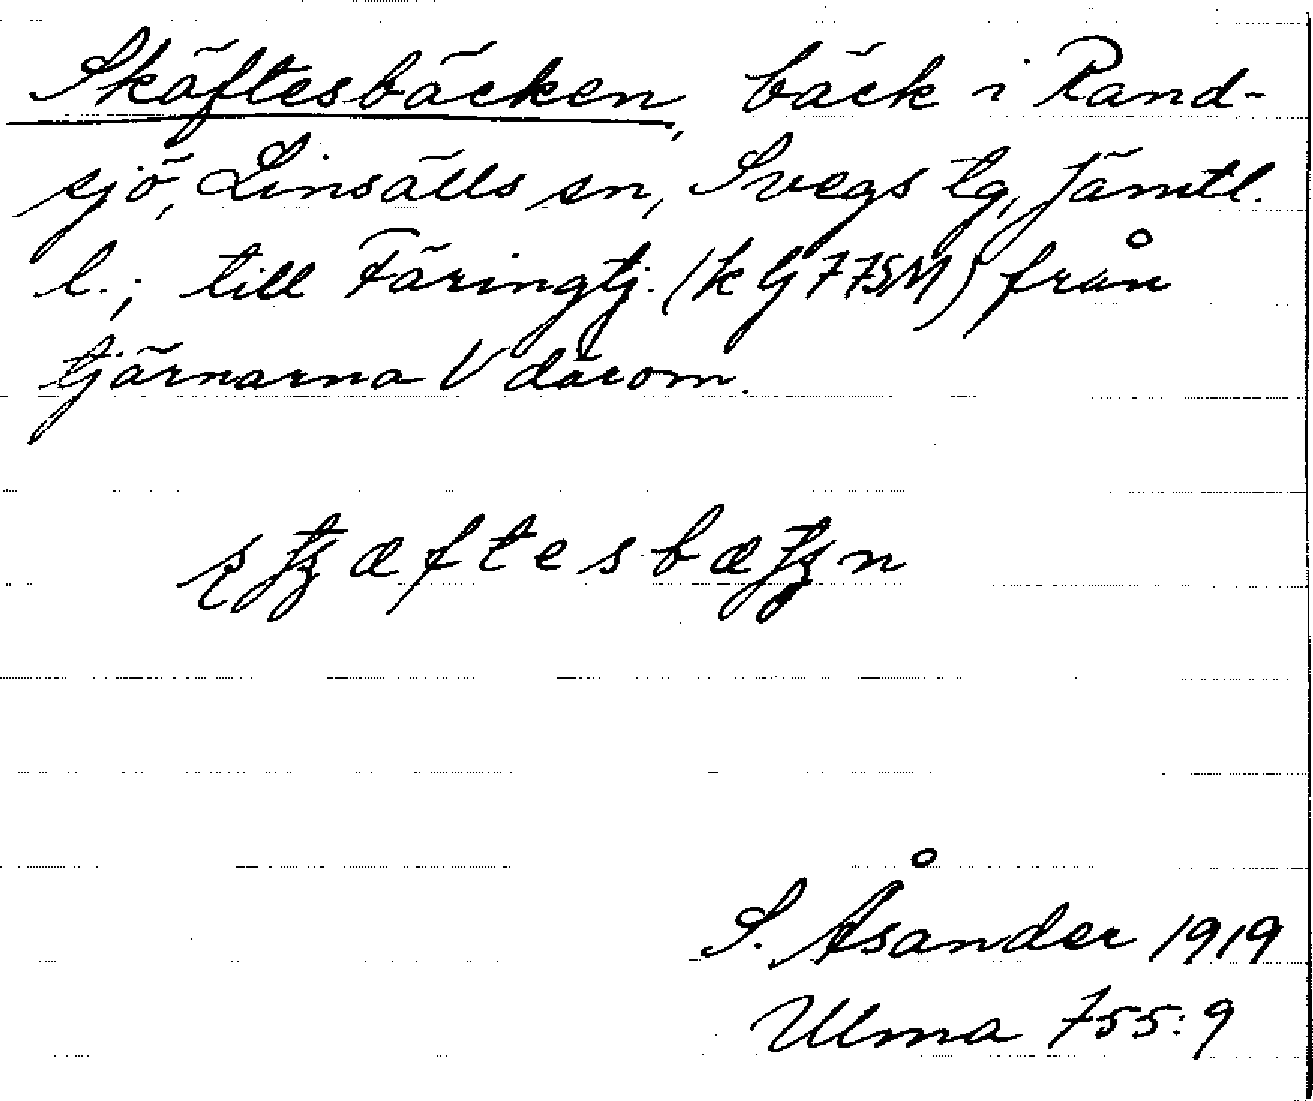 Skäftesbäcken, bäck i Rand-
sjö, Linsälls sn, Svegs tg, Jämtl.
l.; till Färingtj. (k G 775M) från
tjärnarna V därom.
S. Åsander 1919
Ulma 755:9